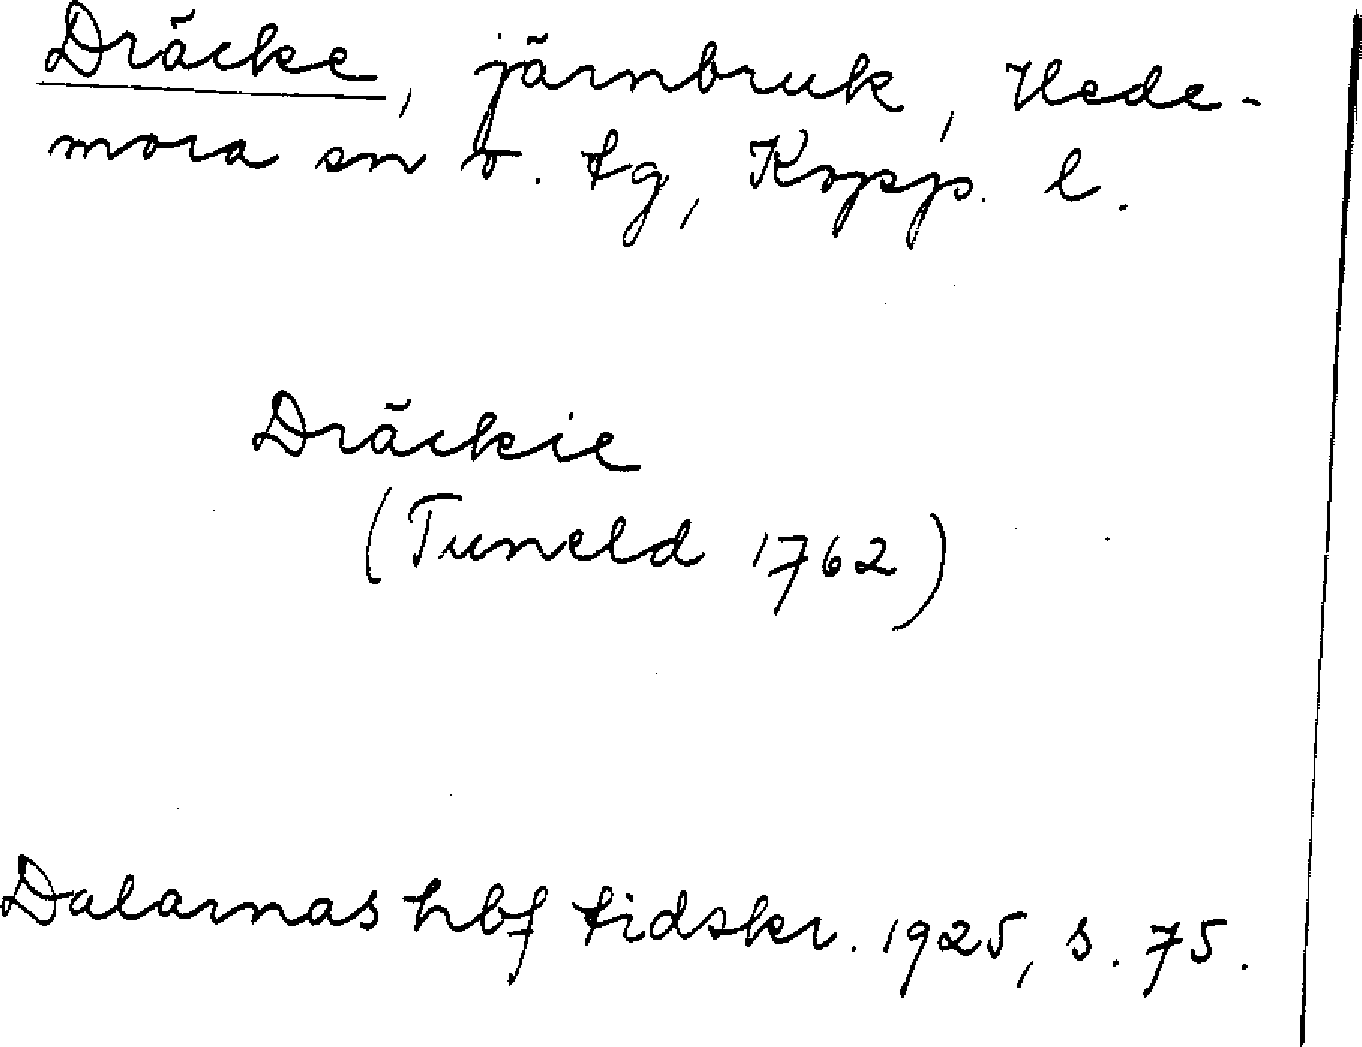 Dräcke, järnbruk, Hede-
mora sn o. tg, Kopp. l.
Dräckie
(Tuneld 1762)
Dalarnas hbf tidskr. 1925, s. 75.